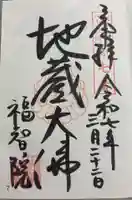 奉拝 令和七年
三月二十二日
地蔵大佛
福智院